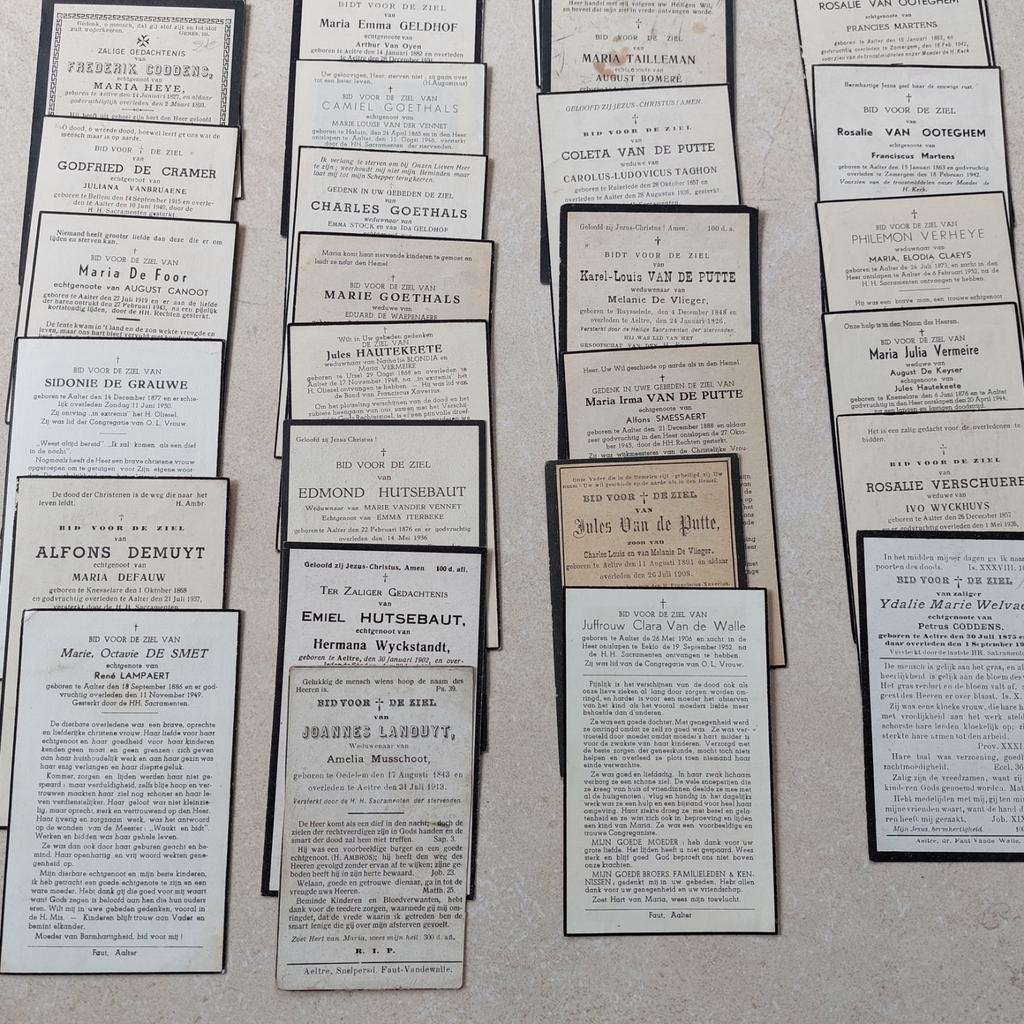 Gedenk, o mensch, dat gij stof zijt en tot stof
zult wederkeeren.
ZALIGE GEDACHTENIS
van
FREDERIK CODDENS,
echtgenoot van
MARIA HEYE,
geboren te Aeltre den 14 Januari 1827, en aldaar
godvruchtiglijk overleden den 2 Maart 1893.
O dood, o wreede dood, hoewel leert ge ons wat de
mensch maar is op aarde.
BID VOOR † DE ZIEL
van
GODFRIED DE CRAMER
echtgenoot van
JULIANA VANBRUAENE
geboren te Bellem den 14 September 1915 en overle-
den te Aalter den 10 Juni 1949, door de
H. H. Sacramenten gesterkt.
Niemand heeft grooter liefde dan deze die er om
lijden zu sterven kan.
BID VOOR DE ZIEL VAN
Maria De Foor
echtgenoote van AUGUST CANOOT
geboren te Aalter den 27 Juli 1919 en er aan de liefde
der haren ontrukt den 27 Februari 1943, na een pijnlijk
kortstondig lijden, door de HH. Rechten gesterkt.
De lente kwam in 't land en de zon wekte vreugde en
BID VOOR DE ZIEL VAN
SIDONIE DE GRAUWE
geboren te Aalter den 14 December 1877 en er schie-
lijk overleden Zondag 11 Juni 1950.
Zij ontving „in extremis" het H. Oliesel.
Zij was lid der Congregatie van O. L. Vrouw.
„Weest altijd bereid". „Ik zal komen als een dief
in de nacht".
Nogmaals heeft een brave christene vrouw
opgeroepen om te getuigen voor Zijn eigene woor
De dood der Christenen is de weg die naar het
leven leidt. H. Ambr.
BID VOOR DE ZIEL
van
ALFONS DEMUYT
echtgenoot van
MARIA DEFAUW
geboren te Knesselare den 1 Oktober 1868
en overleden te Aalter den 21 Juli 1937,
versterkt door de H. H. Sacramenten
BID VOOR DE ZIEL VAN
Marie, Octavie DE SMET
echtgenote van
René LAMPAERT
geboren te Aalter den 18 September 1886 en er god-
vruchtig overleden den 11 November 1949.
Gesterkt door de HH. Sacramenten.
De dierbare overledene was een brave, oprechte
en liefderijke christene vrouw. Haar liefde voor haar
echtgenoot en haar goedheid voor haar kinderen
kenden geen maat en geen grenzen; zich geven
aan haar huishoudelijk werk en aan haar gezin was
haar enig verlangen en haar diepste geluk.
Kommer, zorgen en lijden werden haar niet ge-
spaard: maar verduldigheid, zelfs blije hoop en ver-
trouwen maakten haar ziel nog schoner en haar le-
ven verdienstelijker. Haar geloof was niet kleinzie-
lig, maar oprecht, sterk en vertrouwend op den Heer.
Haar ijverig en zorgzaam werk, was het antwoord
op de wonden van de Meester: „Waakt en bidt".
Werken en bidden was haar gehele leven.
Ze was dan ook door haar geburen geacht en be-
mind. Haar openhartig en vrij woord wekten gene-
genheid op.
Mijn dierbare echtgenoot en mijn beste kinderen,
ik heb getracht een goede echtgenote te zijn en een
ware moeder. Hebt dank gij die goed voor mij waart
want Gods zegen is beloofd aan hen die hun ouders
eren. Wilt mij in uwe gebeden gedenken, vooral in
de H. Mis. — Kinderen blijft trouw aan Vader en
bemint elkander.
Moeder van Barmhartigheid, bid voor mij!
Faut, Aalter
BIDT VOOR DE ZIEL
van
Maria Emma GELDHOF
echtgenoote van
Arthur Van Oyen
geboren te Aalter den 14 Januari 1882 en overleden
Uw geloovigen, Heer, sterven niet; zij gaan over
tot een beter leven. (H. Augustinus)
BID VOOR DE ZIEL VAN
CAMIEL GOETHALS
echtgenoot van
MARIE LOUISE VAN DER VENNET
geboren te Halvin, den 24 April 1865 en in den Heer
ontslapen te Aalter, den 11 Oogst 1946, versterkt
door de HH. Sacramenten der stervenden.
Ik verlang te sterven om bij Onzen Lieven Heer
te zijn; weerhoudt mij niet mijn Beminden maar
laat mij tot mijn Schepper terugkeeren.
GEDENK IN UW GEBEDEN DE ZIEL
van
CHARLES GOETHALS
weduwnaar van
EMMA STOCK en van IDA GELDHOF
Maria komt haar stervende kinderen te gemoet en
leidt ze naar den Hemel.
BID VOOR DE ZIEL
van
MARIE GOETHALS
weduwe van
EDUARD DE WAEPENAERE
Wilt in Uw gebeden gedenken
DE ZIEL VAN
Jules HAUTEKEETE
weduwnaar van Nathalie BLONDIA en
Maria VERMEIRE
geboren te Ursel 29 Oogst 1866 en overleden te
Aalter de 17 November 1948, na „in extremis" het
H. Oliesel ontvangen te hebben. — Hij was lid van
de Bond van Franciscus Xaverius.
Om het plotseling verschijnen van de dood en het
Geloofd zij Jezus Christus!
BID VOOR DE ZIEL
van
EDMOND HUTSEBAUT
Weduwnaar van MARIE VANDER VENNET
Echtgenoot van EMMA ITERBEKE
geboren te Aalter den 22 Februari 1876 en er godvruchtig
overleden den 14 Mei 1936
Geloofd zij Jezus-Christus, Amen 100 d. afl.
TER ZALIGER GEDACHTENIS
van
EMIEL HUTSEBAUT,
echtgenoot van
Hermana Wyckstandt,
geboren te Aeltre, den 30 Januari 1902, en over-
Gelukkig de mensch wiens hoop de naam des
Heeren is. Ps. 39.
BID VOOR † DE ZIEL
van
JOANNES LANDUYT,
Weduwenaar van
Amelia Musschoot,
geboren te Oedelem den 17 Augusti 1843 en
overleden te Aeltre den 31 Juli 1913.
Versterkt door de H. H. Sacramenten der stervenden.
De Heer komt als een dief in den nacht; doch de
zielen der rechtveerdigen zijn in Gods handen en de
smart der dood zal hem niet treffen. Sap. 3.
Hij was een voorbeeldige burger en een goede
echtgenoot. (H. AMBROS); hij heeft den weg des
Heeren gevolgd zonder ervan af te wijken; zijne ge-
boden heeft hij in zijn herte bewaard. Job. 23.
Welaan, goede en getrouwe dienaar, ga in tot de
vreugde uws Heeren. Matth. 25.
Beminde Kinderen en Bloedverwanten, hebt
dank voor de teedere zorgen, waarmede gij mij om-
ringdet, dat de vrede waarin ik getreden ben de
smart lenige die gij over mijn afsterven gevoelt.
Zoet Hert van Maria, wees mijn heil. 300 d. afl.
R. I. P.
Aeltre, Snelpersd. Faut-Vandewalle.
Heer handel met mij volgens uw Heiligen Wil,
en beveel dat mijn ziel in vrede ontvangen worde.
BID VOOR DE ZIEL
van
MARIA TAILLEMAN
echtgenoote van
AUGUST BOMERÉ
GELOOFD ZIJ JEZUS-CHRISTUS! AMEN.
BID VOOR DE ZIEL
van
COLETA VAN DE PUTTE
weduwe van
CAROLUS-LUDOVICUS TAGHON
geboren te Ruiselede den 28 Oktober 1857 en
overleden te Aalter den 28 Augustus 1935, gesterkt
Geloofd zij Jezus-Christus! Amen. 100 d. a.
BIDT VOOR DE ZIEL
van
Karel-Louis VAN DE PUTTE
weduwenaar van
Melanie De Vlieger,
geboren te Ruysselede, den 4 December 1848 en
overleden te Aeltre, den 24 Januari 1926.
Versterkt door de Heilige Sacramenten der stervenden.
HIJ WAS LID VAN HET
Heer, Uw Wil geschiede op aarde als in den Hemel.
GEDENK IN UWE GEBEDEN DE ZIEL VAN
Maria Irma VAN DE PUTTE
echtgenoote van
Alfons SMESSAERT
geboren te Aalter den 21 December 1888 en aldaar
zeer godvruchtig in den Heer ontslapen den 27 Okto-
ber 1945, door de HH. Rechten gesterkt.
Zij was wijkmeesteres van de Christelijke
Onze Vader die in de Hemelen zijt - geheiligd zij Uw
naam - Uw wil geschiede op de aarde als in den Hemel.
BID VOOR † DE ZIEL
VAN
Jules Van de Putte,
zoon van
Charles Louis en van Melanie De Vlieger.
geboren te Aeltre den 11 Augusti 1891 en aldaar
overleden den 26 Juli 1908.
BID VOOR DE ZIEL VAN
Juffrouw Clara Van de Walle
geboren te Aalter de 26 Mei 1906 en zacht in de
Heer ontslapen te Eeklo de 19 September 1952, na de
H. H. Sacramenten ontvangen te hebben.
Zij was lid van de Congregatie van O. L. Vrouw.
Pijnlijk is het verschijnen van de dood ook als
onze lieve zieken al lang door zorgen worden om-
ringd, en harder is voor een moeder het afsterven
van het kind als het vooral moeders liefde meer
behoefde dan d'anderen.
Ze was een goede dochter. Met genegenheid werd
ze omringd omdat ze zelf zo goed was. Ze was ver-
troetled door moeder omdat moeder's hart milder is
voor de zwakste van haar kinderen. Verzorgd met
de beste zorgen der geneeskunde, mocht toch niets
helpen en overleed ze plots toen niemand haar
einde verwachtte.
Ze was goed en liefdadig. In haar zwak lichaam
verborg ze een schone ziel. De vele snoeperijen die
ze kreeg van huis of vriendinnen deelde ze mee met
al de huisgenoten, vlug en handig in het dagelijks
werk was ze een hulp en een bijstand voor heel haar
omgeving. Haar ziekte droeg ze met besef en gela-
tenheid en ze wist zich ook in beproeving en lijden
een kind van Maria. Ze was een voorbeeldige en
trouwe Congreganiste.
MIJN GOEDE MOEDER: heb dank voor uw
grote liefde. Het lijden heeft u niet gespaard. Wees
sterk en blijf goed. God beproeft ons niet boven
onze krachten.
MIJN GOEDE BROERS, FAMILIELEDEN & KEN-
NISSEN, gedenkt mij in uw gebeden. Hebt allen
dank voor uw genegenheid en uw vriendschap.
Zoet Hart van Maria, wees mijn toevlucht.
Faut, Aalter
ROSALIE VAN OOTEGHEM
echtgenoote van
FRANCIES MARTENS
geboren te Aalter den 15 Januari 1863, en
godvruchtig overleden te Zomergem, den 18 Feb. 1942,
voorzien van de troostmiddelen onzer Moeder de H. Kerk
Barmhartige Jesus geef haar de eeuwige rust.
BID VOOR DE ZIEL
van
Rosalie VAN OOTEGHEM
echtgenoote van
Franciscus Martens
geboren te Aalter den 15 Januari 1863 en godvruchtig
overleden te Zomergem den 18 Februari 1942.
Voorzien van de troostmiddelen onzer Moeder de
H. Kerk.
BID VOOR DE ZIEL VAN
PHILEMON VERHEYE
weduwnaar van
MARIA, ELODIA CLAEYS
geboren te Aalter de 24 Juli 1873, en zacht in den
Heer ontslapen te Aalter de 6 Februari 1952, na de
H. H. Sacramenten ontvangen te hebben.
Hij was een brave man, een trouwe echtgenoot
Onze hulp is in den Naam des Heeren.
BID VOOR DE ZIEL
van
Maria Julia Vermeire
echtgenoote van
August De Keyser
en van
Jules Hautekeete
geboren te Knesselare den 6 Juni 1876 en godvruchtig
in den Heer ontslapen den 20 April 1944,
Het is een zalig gedacht voor de overledenen te
bidden.
BID VOOR DE ZIEL
van
ROSALIE VERSCHUERE
weduwe van
IVO WYCKHUYS
geboren te Aalter den 26 December 1857
en godvruchtig overleden den 1 Mei 1938,
In het midden mijner dagen ga ik naar
poorten des doods. Is. XXXVIII, 10
BID VOOR † DE ZIEL
van zaliger
Ydalie Marie Welvae
echtgenoote van
Petrus CODDENS,
geboren te Aeltre den 30 Juli 1875
daar overleden den 1 September
De mensch is gelijk aan het gras, en al
heerlijkheid is gelijk aan de bloem des
Het gras verdort en de bloem valt af,
geest des Heeren er over blaast. Is. X
Zij was eene kloeke vrouw, die hare h
met vroolijkheid aan het werk stelde
schorste hare lenden kloekelijk op, zij
sterkte hare armen tot den arbeid.
Prov. XXXI
Hare taal was verzoening, goedh
zachtmoedigheid. Eccl. 36
Zalig zijn de vreedzamen, want zij
kinderen Gods genoemd worden. Mat
Hebt medelijden met mij, gij ten min
mijne vrienden, want de hand de
ren heeft mij geraakt. Job. XIX
Mijn Jesus, bermhertigheid. 100
Aeltre, dr. Faut Vande Walle.